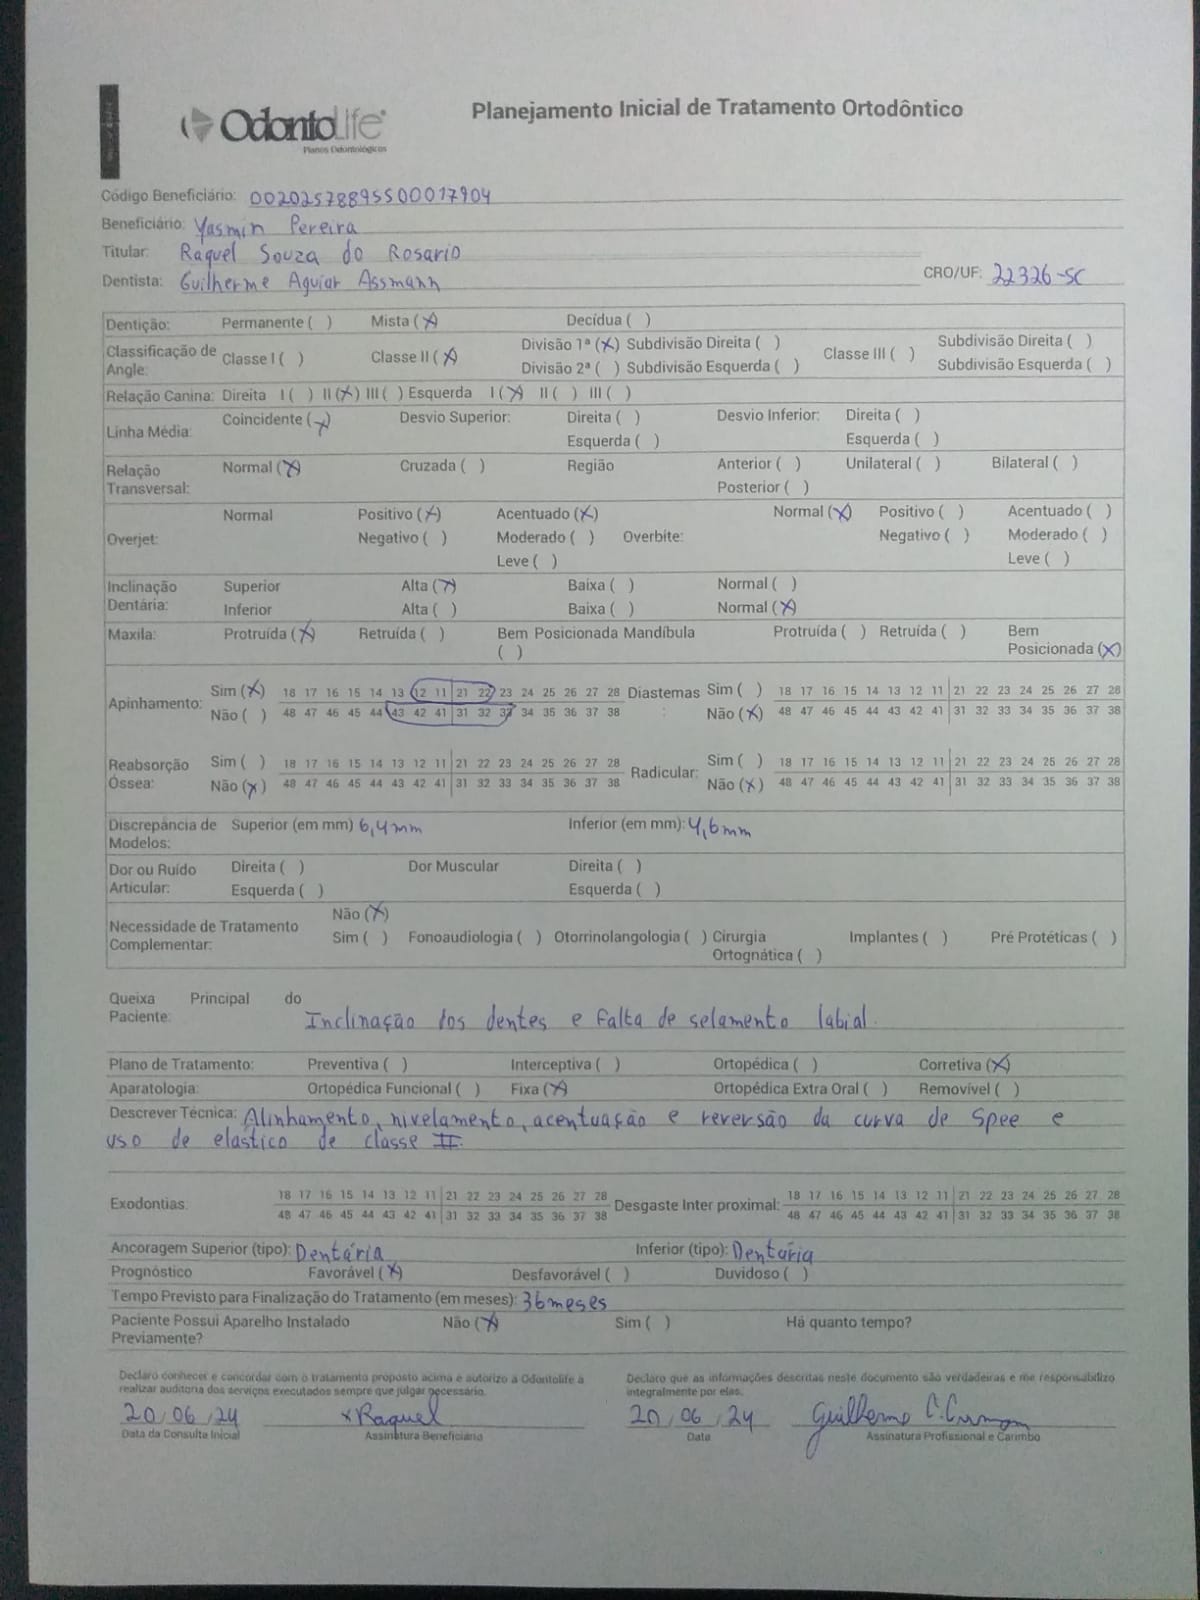 OdontoLife
Planos Odontológicos
Planejamento Inicial de Tratamento Ortodôntico
Código Beneficiário: 00202578895500017904
Beneficiário: Yasmin Pereira
Titular: Raquel Souza do Rosario
Dentista: Guilherme Aguiar Assmann CRO/UF: 22326-SC
Dentição: Permanente ( ) Mista (X) Decídua ( )
Classificação de Angle: Classe I ( ) Classe II (X) Divisão 1ª (X) Subdivisão Direita ( ) Classe III ( ) Subdivisão Direita ( )
Divisão 2ª ( ) Subdivisão Esquerda ( ) Subdivisão Esquerda ( )
Relação Canina: Direita I ( ) II (X) III ( ) Esquerda I (X) II ( ) III ( )
Linha Média: Coincidente (X) Desvio Superior: Direita ( ) Desvio Inferior: Direita ( )
Esquerda ( ) Esquerda ( )
Relação Transversal: Normal (X) Cruzada ( ) Região Anterior ( ) Unilateral ( ) Bilateral ( )
Posterior ( )
Overjet: Normal Positivo (X) Acentuado (X) Overbite: Normal (X) Positivo ( ) Acentuado ( )
Negativo ( ) Moderado ( ) Negativo ( ) Moderado ( )
Leve ( ) Leve ( )
Inclinação Dentária: Superior Alta (X) Baixa ( ) Normal ( )
Inferior Alta ( ) Baixa ( ) Normal (X)
Maxila: Protruída (X) Retruída ( ) Bem Posicionada ( ) Mandíbula Protruída ( ) Retruída ( ) Bem Posicionada (X)
Apinhamento: Sim (X) 18 17 16 15 14 13 12 11 21 22 23 24 25 26 27 28 Diastemas: Sim ( ) 18 17 16 15 14 13 12 11 21 22 23 24 25 26 27 28
Não ( ) 48 47 46 45 44 43 42 41 31 32 33 34 35 36 37 38 Não (X) 48 47 46 45 44 43 42 41 31 32 33 34 35 36 37 38
Reabsorção Óssea: Sim ( ) 18 17 16 15 14 13 12 11 21 22 23 24 25 26 27 28 Radicular: Sim ( ) 18 17 16 15 14 13 12 11 21 22 23 24 25 26 27 28
Não (X) 48 47 46 45 44 43 42 41 31 32 33 34 35 36 37 38 Não (X) 48 47 46 45 44 43 42 41 31 32 33 34 35 36 37 38
Discrepância de Modelos: Superior (em mm) 6,4mm Inferior (em mm): 4,6mm
Dor ou Ruído Articular: Direita ( ) Dor Muscular Direita ( )
Esquerda ( ) Esquerda ( )
Necessidade de Tratamento Complementar: Não (X)
Sim ( ) Fonoaudiologia ( ) Otorrinolangologia ( ) Cirurgia Ortognática ( ) Implantes ( ) Pré Protéticas ( )
Queixa Principal do Paciente: Inclinação dos dentes e falta de selamento labial.
Plano de Tratamento: Preventiva ( ) Interceptiva ( ) Ortopédica ( ) Corretiva (X)
Aparatologia: Ortopédica Funcional ( ) Fixa (X) Ortopédica Extra Oral ( ) Removível ( )
Descrever Técnica: Alinhamento, nivelamento, acentuação e reversão da curva de Spee e
uso de elastico de classe II.
Exodontias: 18 17 16 15 14 13 12 11 21 22 23 24 25 26 27 28 Desgaste Inter proximal: 18 17 16 15 14 13 12 11 21 22 23 24 25 26 27 28
48 47 46 45 44 43 42 41 31 32 33 34 35 36 37 38 48 47 46 45 44 43 42 41 31 32 33 34 35 36 37 38
Ancoragem Superior (tipo): Dentária Inferior (tipo): Dentária
Prognóstico Favorável (X) Desfavorável ( ) Duvidoso ( )
Tempo Previsto para Finalização do Tratamento (em meses): 36 meses
Paciente Possui Aparelho Instalado Previamente? Não (X) Sim ( ) Há quanto tempo?
Declaro conhecer e concordar com o tratamento proposto acima e autorizo a Odontolife a
realizar auditoria dos serviços executados sempre que julgar necessário.
Declaro que as informações descritas neste documento são verdadeiras e me responsabilizo
integralmente por elas.
20/06/24 x Raquel 20/06/24 Guilherme
Data da Consulta Inicial Assinatura Beneficiário Data Assinatura Profissional e Carimbo